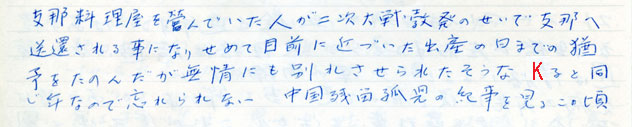 支那料理屋を営んでいた人が二次大戦勃発のせいで支那へ
送還される事になりせめて目前に近づいた出産の日までの猶
予をたのんだが無情にも別れさせられたそうな Kると同
じ年なので忘れられない 中国残留孤児の紀事を見るこの頃